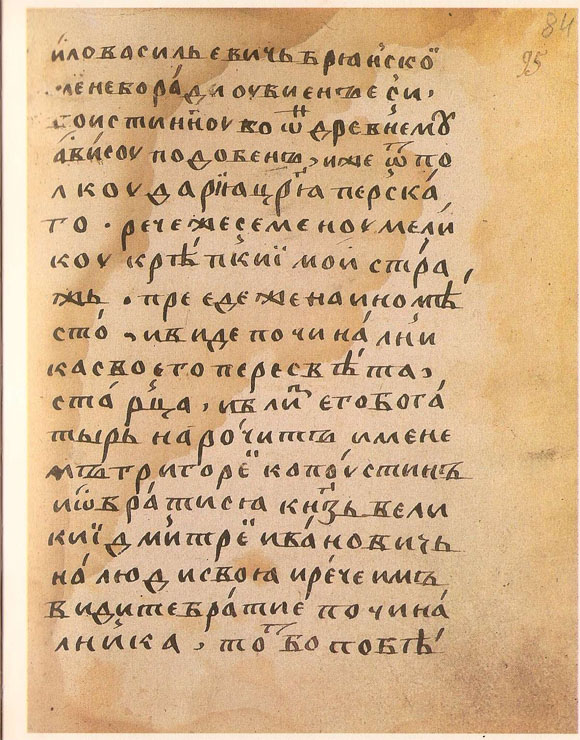 84
95
и́ловасильевичьбряⷩ҇скоⷪ҇
ленебора́диоубиенъеси·
тоистинноуко ѿ древнемꙋ
а́висоу подобенъ, иже ѿ по
лкоударїацр҃їа перска́
го · речежесеменоумели́
коу крѣпⷦ҇кїи мои стра́
жь · прееде женаиномѣ́
сто́ , ивиде почина́лни
касвоего пересвѣта,
ста́рца , ибли҃ егобога́
тырь наро́читъ имене
мъ григоре́й капоустинъ
иѡбра́тися кнѧ҃зь вели
кїи дмитре́й ива́новичь
на́ людисвоя ире́чеимъ
видитебра́тие почина́
лника , то҃бопобѣ́